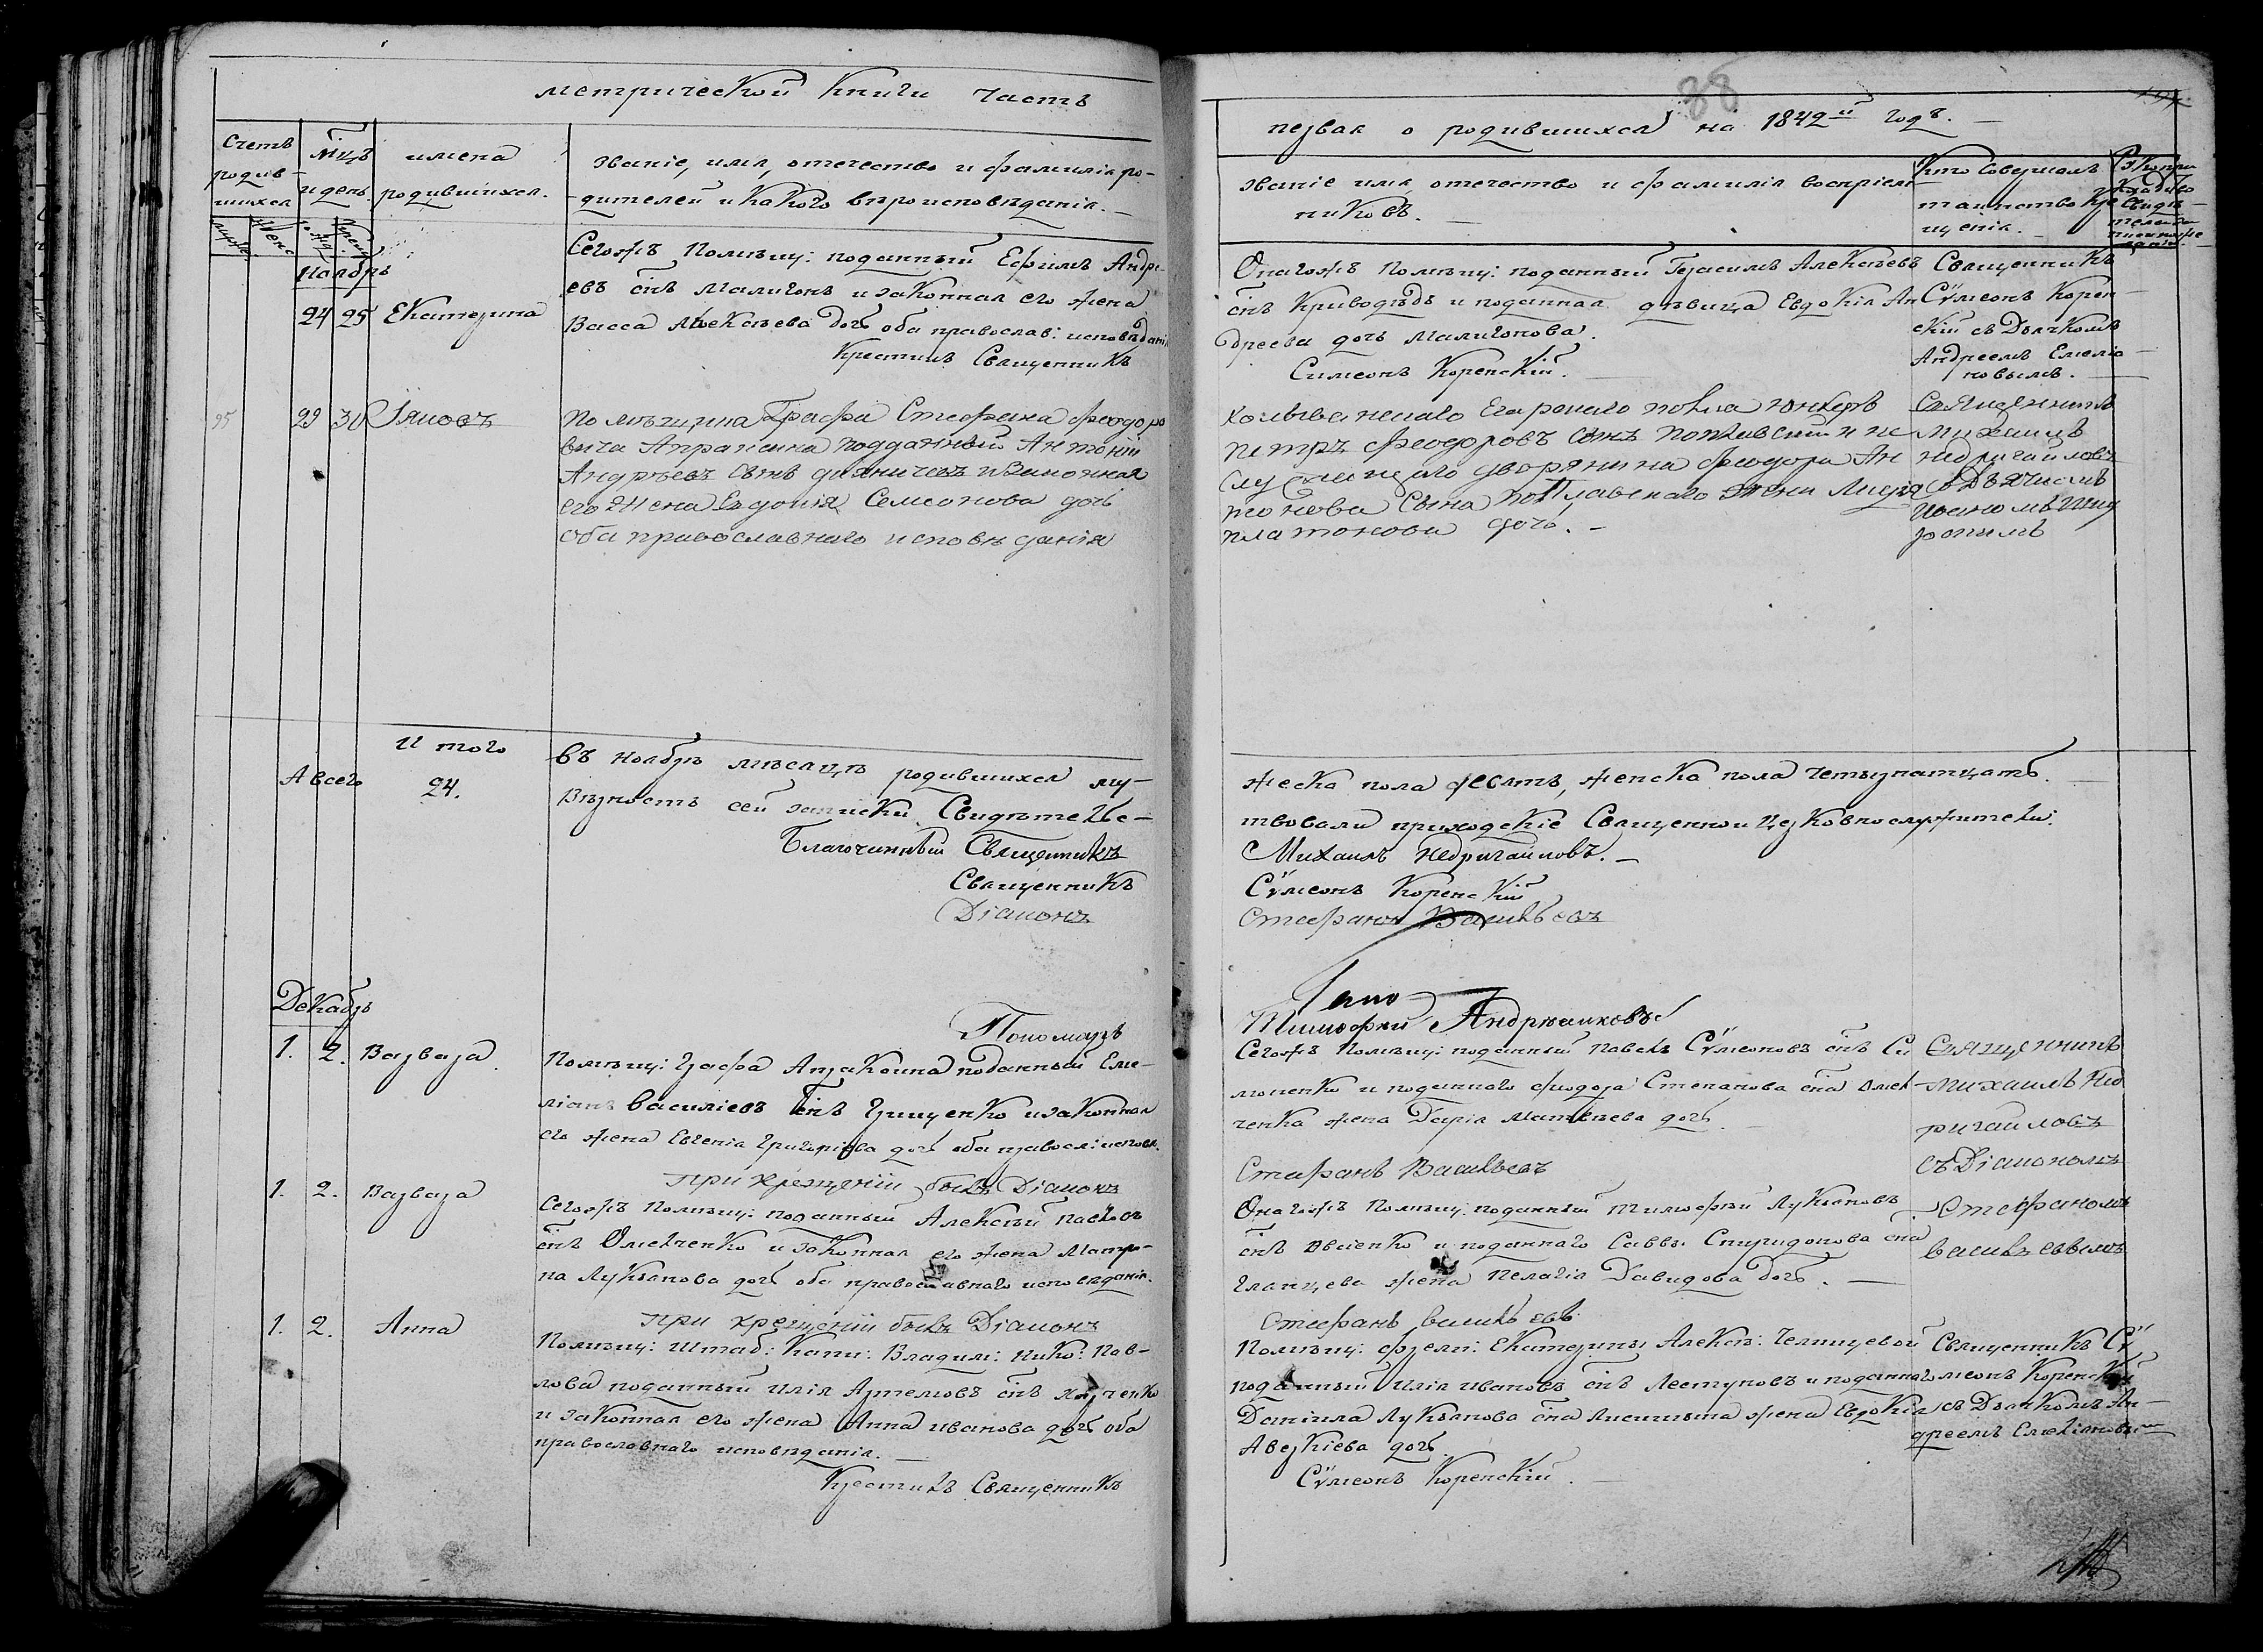 метрической книги часть
Счетъ родив-шихся
мцъ и день.
имена родившихся.
званіе, имя, отечество и фамилія ро-
-дителей и какого вѣроисповѣданія.
Ноябрь
24 25 Екатерина
Сегожъ Помѣщ: поданный Ефимъ Андре-
евъ снъ Малигонъ и законная его жена
Васса Алексѣева дочь оба православ: исповѣданія
Крестилъ Священникъ
95 29 30 Іяковъ
Помѣщика Графа Стефана Феодоро
вича Апраксина подданный Антоній
Андрѣевъ сынъ и законная
его жена Евдокія Семеонова дочь
оба православнаго исповѣданія
А всего
Итого 24.
въ Ноябрѣ мѣсяцѣ родившихся му-
Вѣрность сей записки Свидѣтельс-
Благочинный Священникъ
Священникъ
Діаконъ
Пономарь
Декабрь
1. 2. Варвара
Помѣщ: Графа Апраксина поданный Еме-
ліанъ Василіевъ снъ Грищенко и законная
его жена Евгенія Григоріева дочь оба правосл: исповѣ.
при крещеніи былъ Діаконъ
1. 2. Варвара
Сегожъ Помѣщ: поданный Алексѣй Павловъ
снъ Омелченко и законная его жена Матро-
на Лукьянова дочь оба православнаго исповѣданія.
при крещеніи былъ Діаконъ
1. 2. Анна
Помѣщ: Штаб: Капи: Владим: Нико: Пав-
лова поданный Илія Артемовъ снъ
и законная его жена Анна Иванова дочь оба
православнаго исповѣданія.
Крестилъ Священникъ
88
первая о родившихся на 1842й годъ.
званіе имя отечество и фамилія воспріем-
никовъ.
Кто совершалъ таинство крещенія.
Онагожъ Помѣщ: поданный Герасимъ Алексѣевъ
снъ Криводѣдъ и поданная дѣвица Евдокія Ан
дреева дочь Малигонова.
Симеонъ Коренскій.
Священникъ
Сѵмеонъ Корен-
скій съ Дьячкомъ
Андреемъ Емеліа-
новымъ.
Егарскаго полка Юнкеръ
Петръ Феодоровъ сынъ и не
служащаго дворянина Феодора Ан
тонова сына жена
Платонова дочь.
Священникъ
Михаилъ
Недригайловъ
съ Дьячкомъ
Іоаномъ
жеска пола десять, женска пола четырнатцать.
твовали приходскіе Священно и Церковнослужители:
Михаилъ Недригайловъ.
Сѵмеонъ Коренскій
Стефанъ Васильевъ
Тимофей Андрѣйковъ
Сегожъ Помѣщ: поданный Павелъ Сѵмеоновъ снъ Си
моненко и поданного Феодора Степанова сна Омел
ченка жена Дарія Матвѣева дочь
Стефанъ Васильевъ
Священникъ
Михаилъ Нед
ригайловъ
съ Діакономъ
Стефаномъ
Васильевымъ
Онагожъ Помѣщ: поданный Тимофѣй Лукьяновъ
снъ Овсіенко и поданнаго Саввы Спиридонова сна
Гланцева жена Пелагія Давидова дочь.
Стефанъ Васильевъ
Помѣщ: Фрели: Екатерины Алексѣ: Челищевой
поданный Илія Ивановъ снъ Лестуновъ и поданнаго
Даніила Лукьянова сна жена Евдокія
Аверкіева дочь
Сѵмеонъ Коренскій.
Священникъ Сѵ
меонъ Коренскій
съ Дьячкомъ Ан-
дреемъ Емеліановымъ